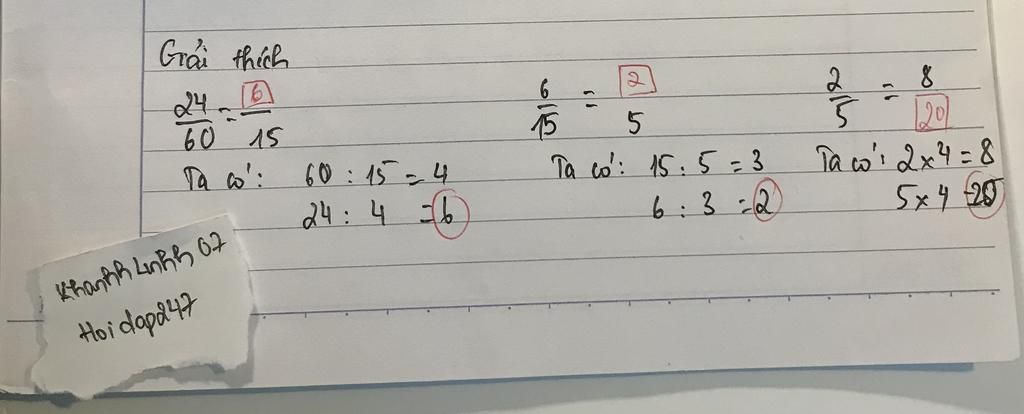 Giải thích
24/60 = 6/15
Ta có: 60 : 15 = 4
24 : 4 = 6
6/15 = 2/5
Ta có: 15 : 5 = 3
6 : 3 = 2
2/5 = 8/20
Ta có: 2 x 4 = 8
5 x 4 = 20
KhanhhLinhh07
Hoidap247